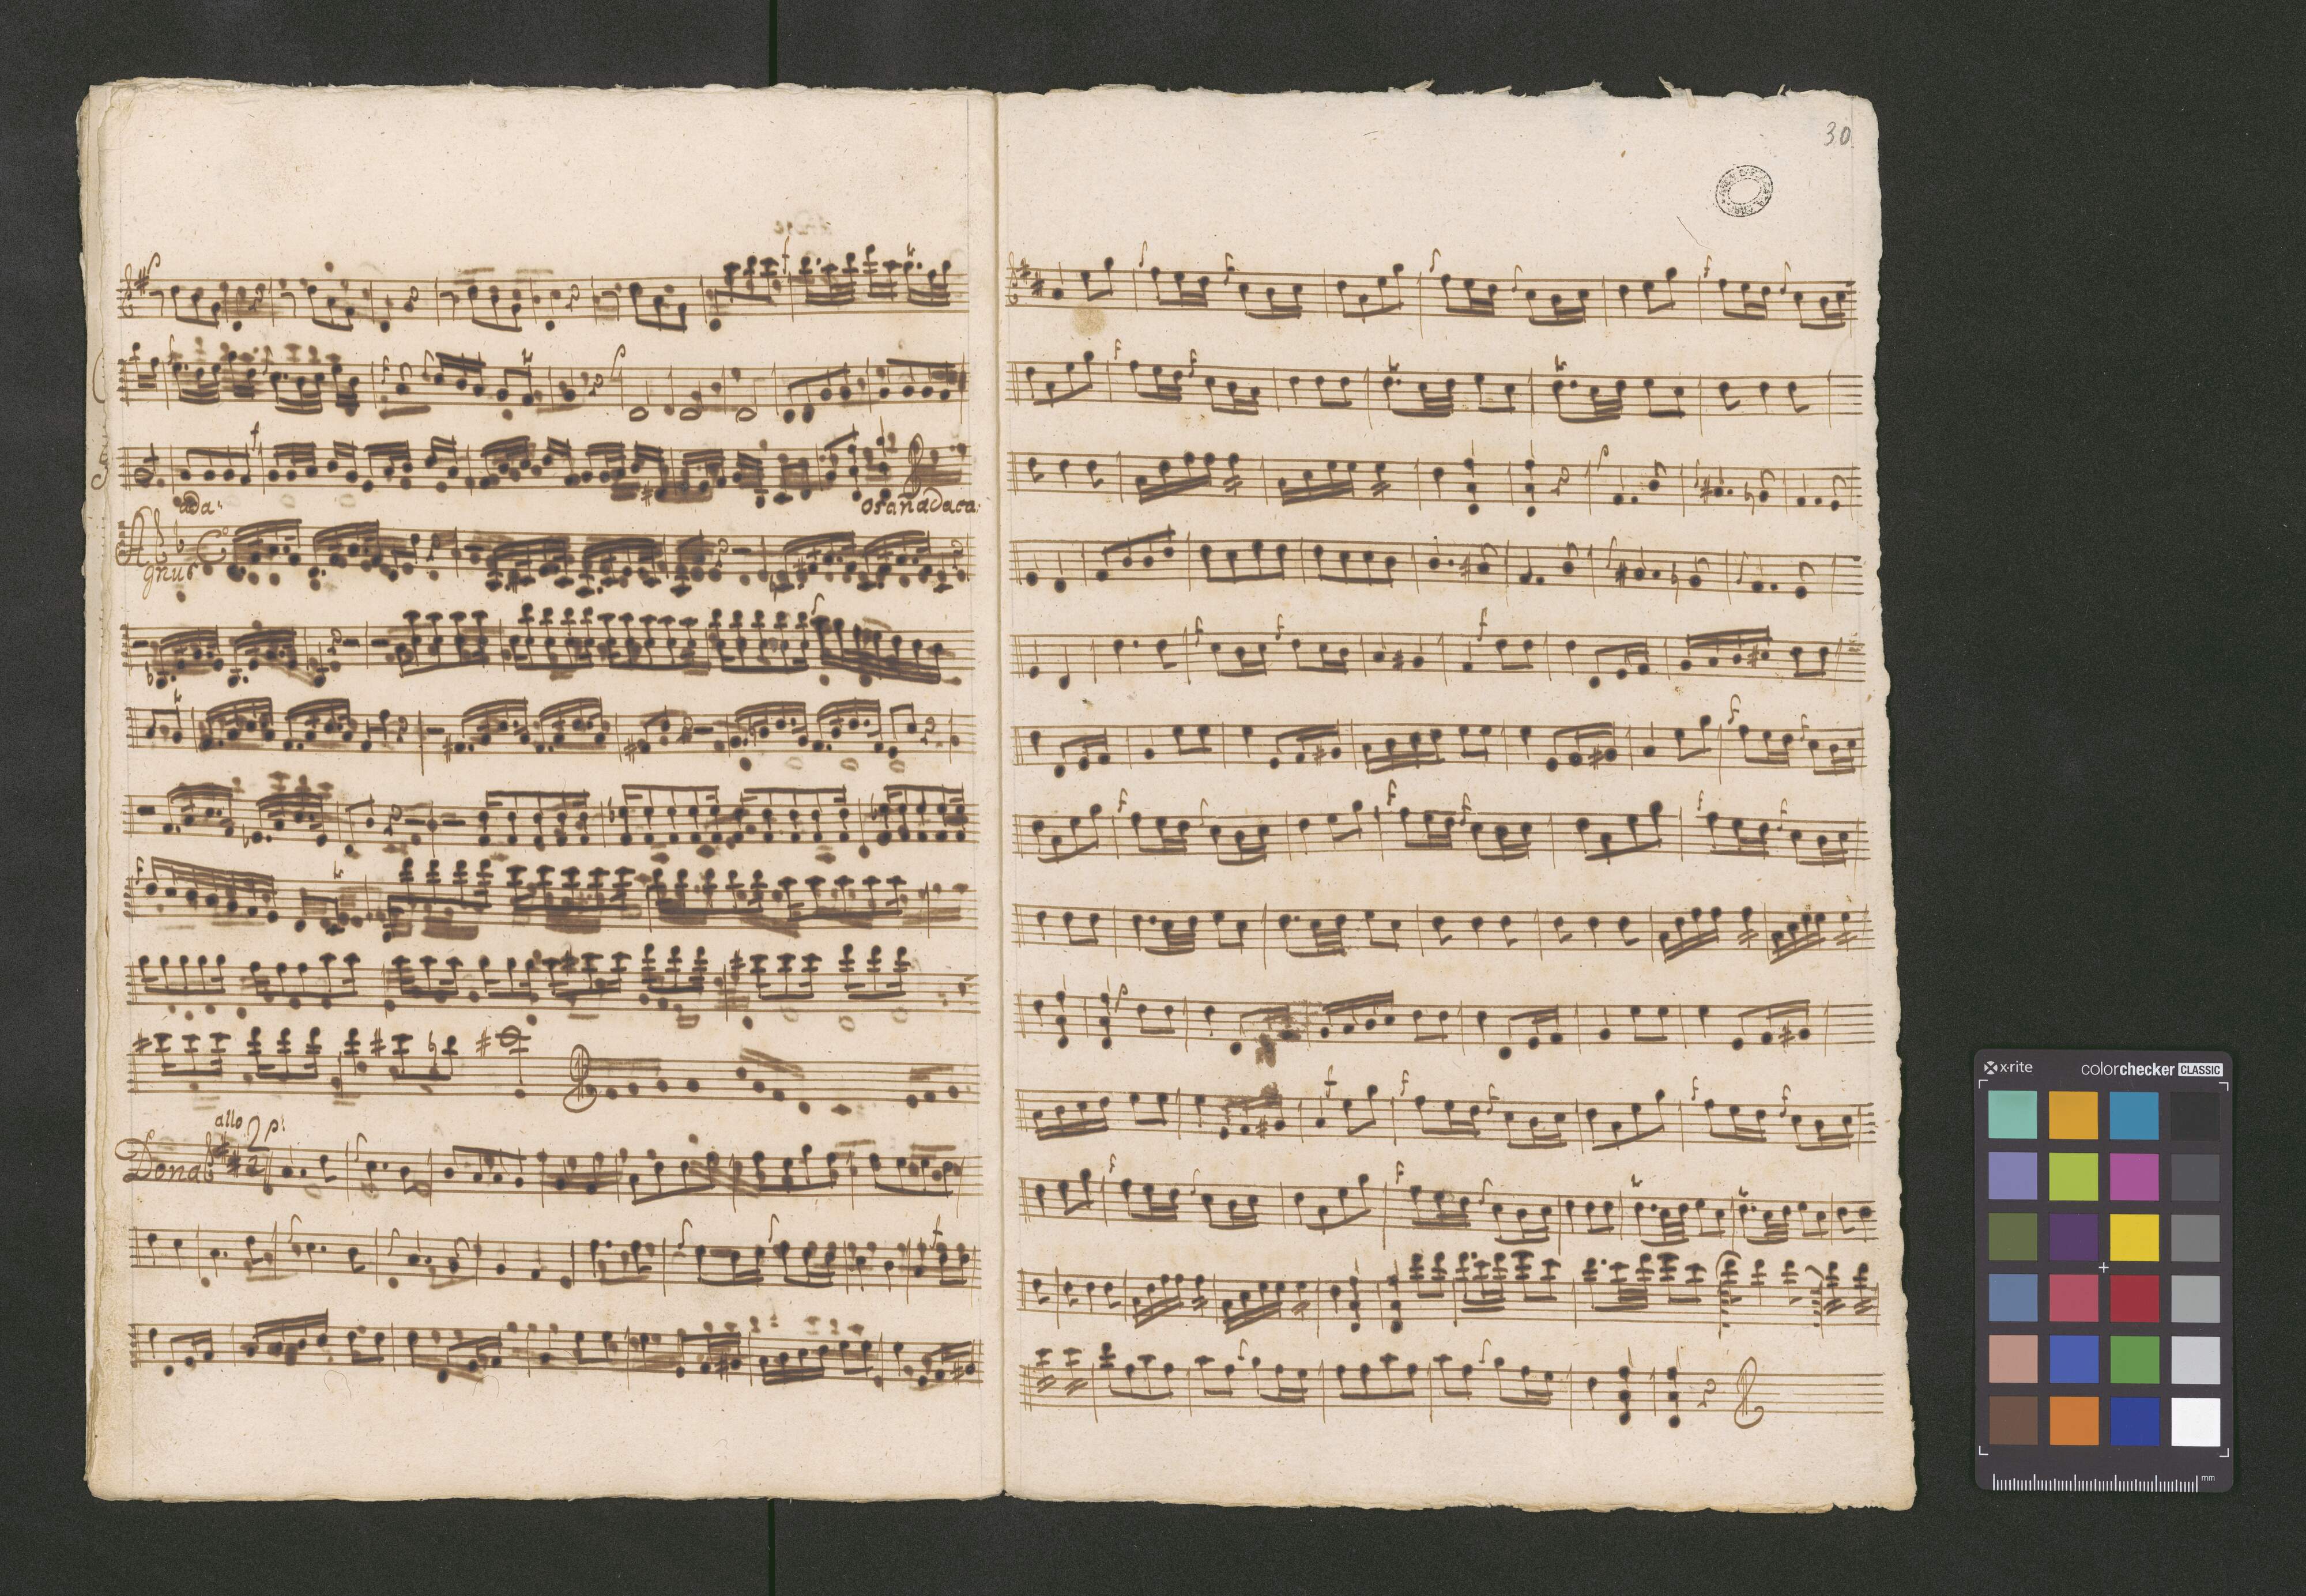 30
ada:
osanadaca:
Agnus
allo
Dona
p:
x·rite
colorchecker CLASSIC
mm